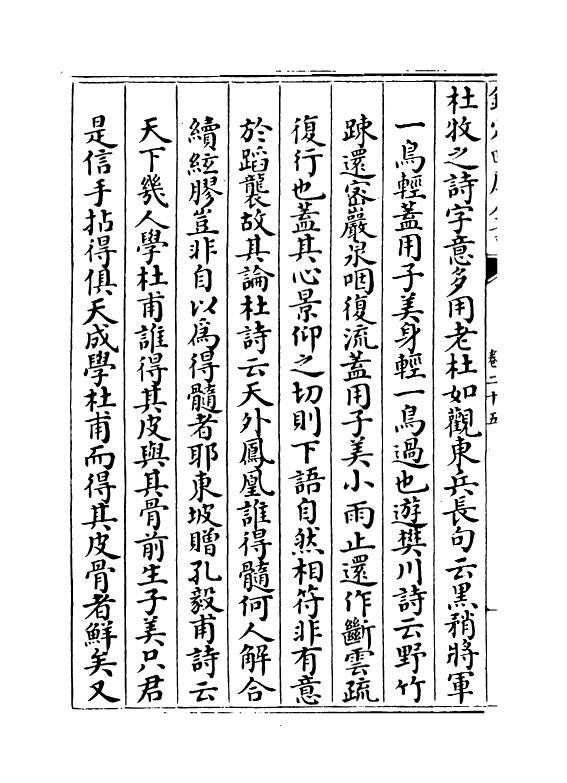 卷二十五
杜牧之詩字意多用老杜如觀東兵長句云黑矟將軍
一鳥輕蓋用子美身輕一鳥過也遊樊川詩云野竹
踈還密巖泉咽復流蓋用子美小雨止還作斷雲疏
復行也蓋其心景仰之切則下語自然相符非有意
於蹈襲故其論杜詩云天外鳳凰誰得髓何人解合
續絃膠豈非自以為得髓者耶東坡贈孔毅甫詩云
天下幾人學杜甫誰得其皮與其骨前生子美只君
是信手拈得俱天成學杜甫而得其皮骨者鮮矣又